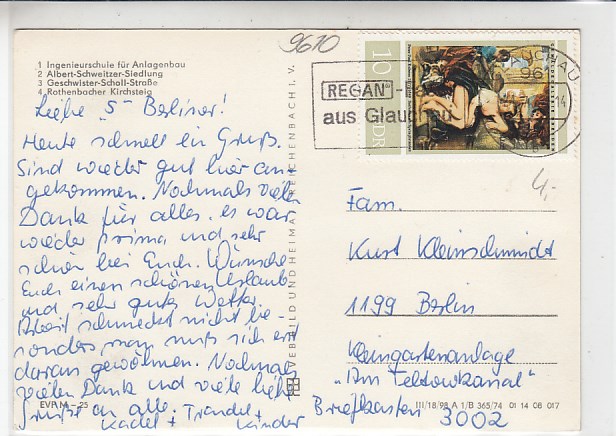 9610
1 Ingenieurschule für Anlagenbau
2 Albert-Schweitzer-Siedlung
3 Geschwister-Scholl-Straße
4 Rothenbacher Kirchsteig
10
DDR
REGAN
aus Glauchau
4,-
Liebe "5" Berliner!
Heute schnell ein Gruß.
Sind wieder gut hier an-
gekommen. Nochmals vielen
Dank für alles, es war
wieder prima und sehr
schön bei Euch. Wünsche
Euch einen schönen Urlaub
und sehr gutes Wetter.
Arbeit schmeckt nicht be-
sonders man muß sich erst
daran gewöhnen. Nochmals
vielen Dank und viele liebe
Grüße an alle.
+ Kinder
Fam.
Kurt Kleinschmidt
1199 Berlin
Kleingartenanlage
"Am Teltowkanal"
Briefkasten 3002
BILD UND HEIMAT REICHENBACH I. V.
EVP M -,25
III/18/98 A 1/B 365/74 01 14 06 017